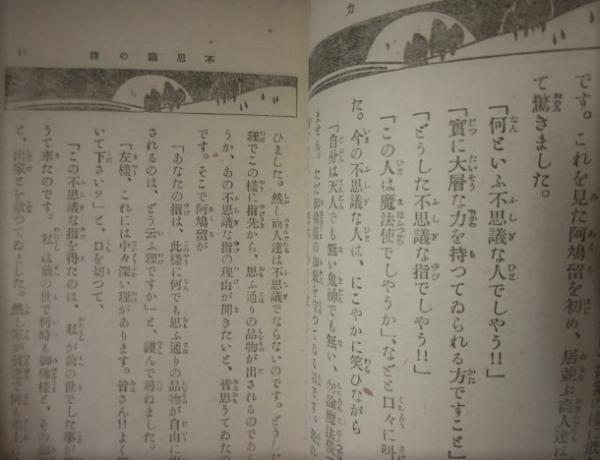 です。これを見た阿鳩留を初め、居並ぶ高人達は
て驚きました。
「何といふ不思議な人でしやう!!」
「實に大層な力を持つてゐられる方ですこと」
「どうした不思議な指でしやう!!」
「この人は魔法使でしやうか」、などと口々に叫
た。今の不思議な人は、にこやかに笑ひながら
「自分は天人でも無い鬼神でも無い、勿論魔法使
ません。
不思議の指
ひました。然し高人達は不思議でならないのです。どうし
理でこの様に指先から、思ふ通りの品物が出されるのであ
うか、あの不思議な指の理由が聞きたいと、皆思うてゐたの
です。そこで阿鳩留が
「あなたの指は、此様に何でも思ふ通りの品物が自由に出
されるのは、どう云ふ理ですか」と、謹んで尋ねました。
「左様、これには中々深い理があります。皆さん!!よく聞
いて下さい」と、口を切つて、
「この不思議な指を得たのは、私が前の世でした事が
うて来たのです。私は前の世で何時も御佛様と、その御
と、出家とを敬つてゐました。然し家が貧乏で何も差上